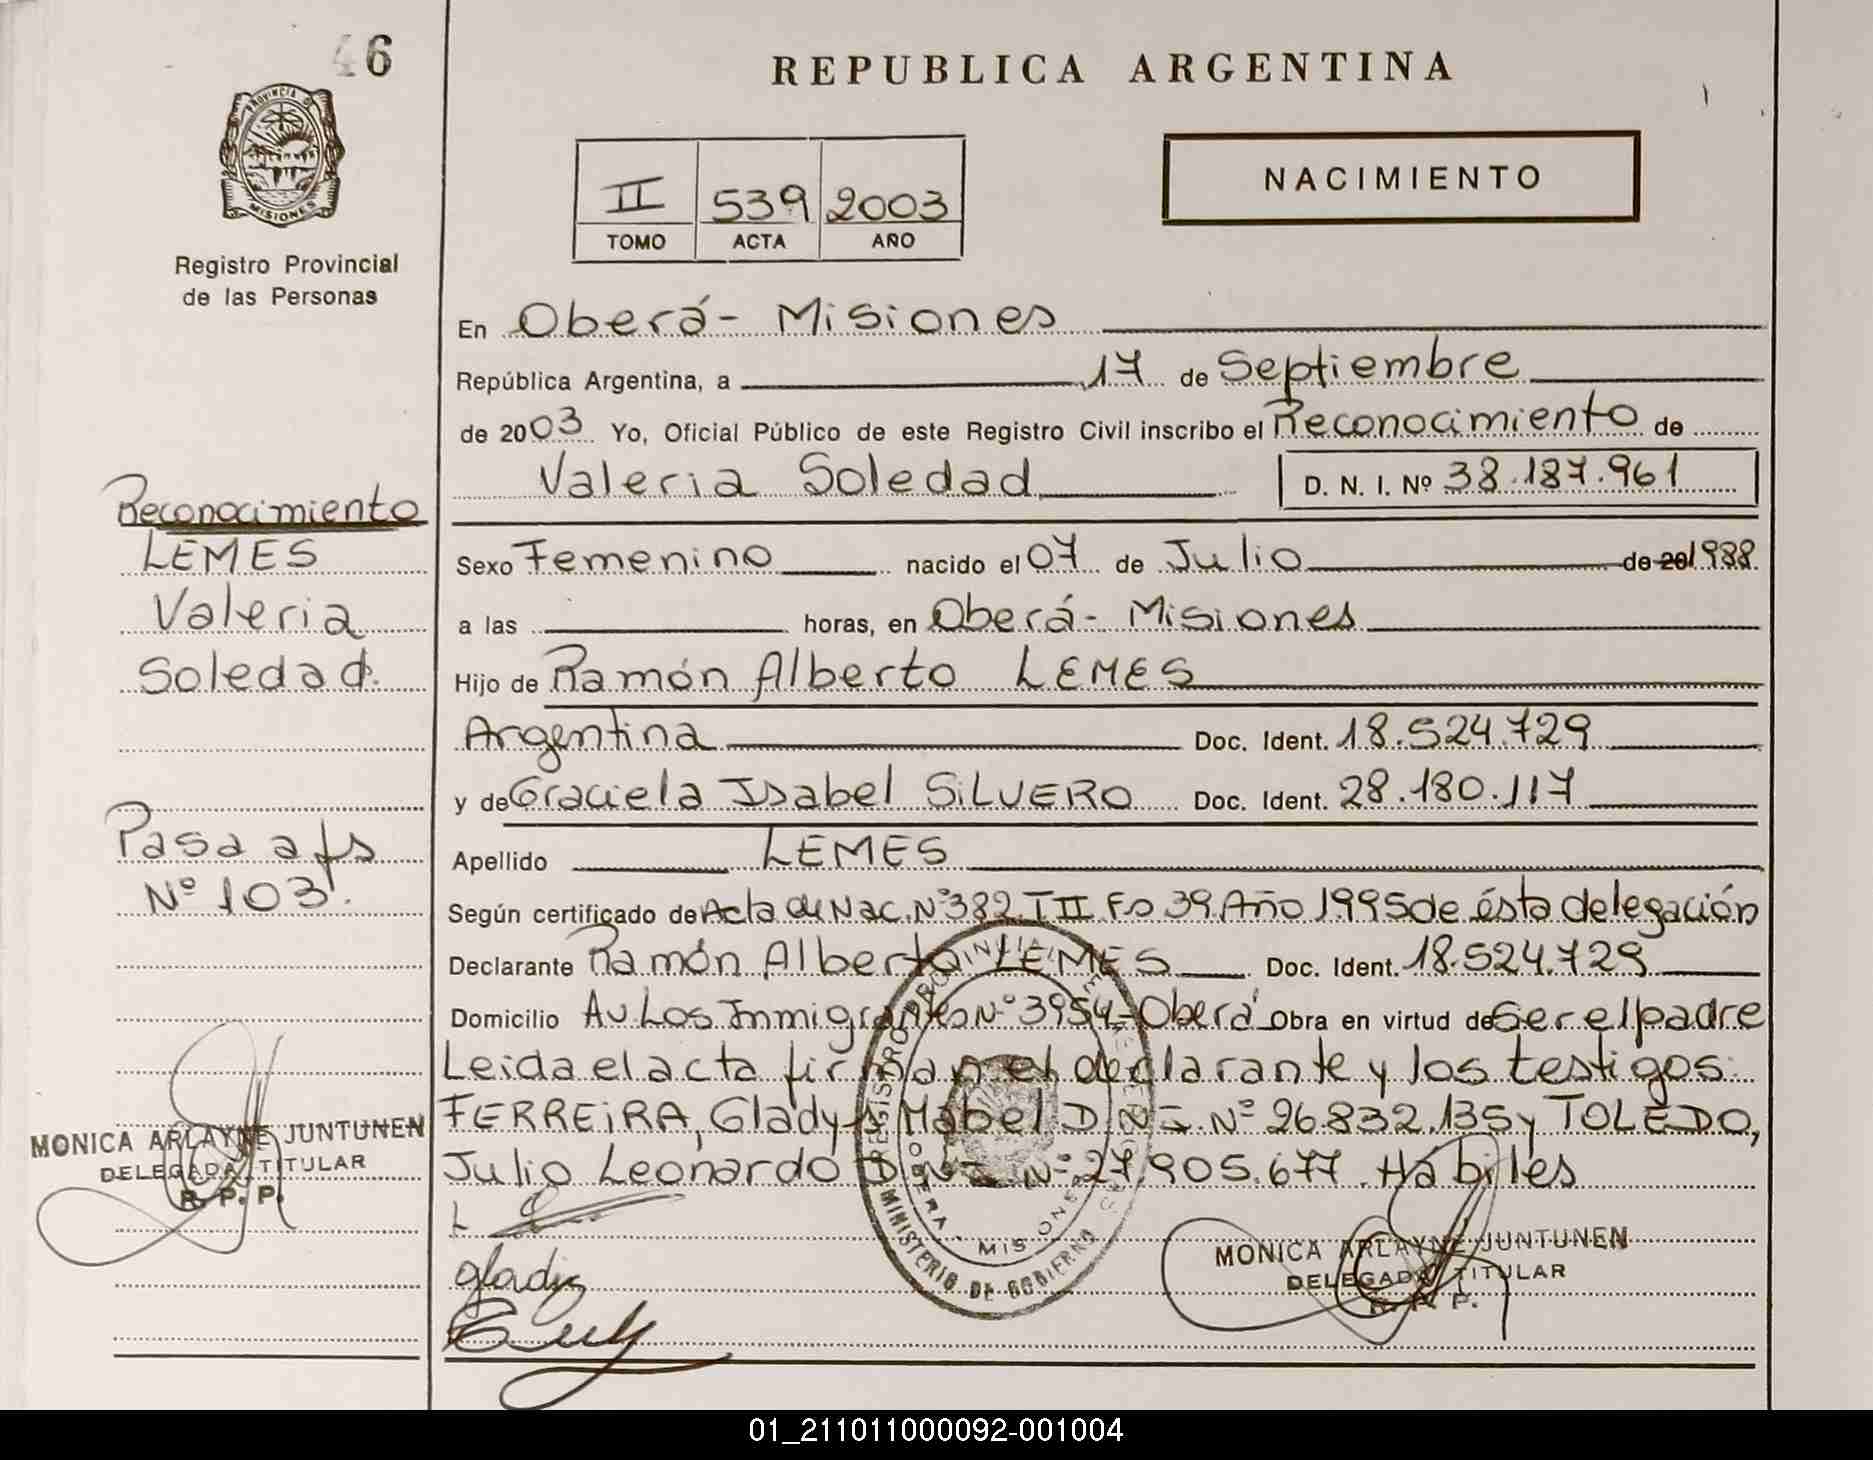 46
PROVINCIA DE
MISIONES
Registro Provincial
de las Personas
REPUBLICA ARGENTINA
II 539 2003
TOMO ACTA AÑO
NACIMIENTO
En Oberá - Misiones
República Argentina, a 17 de Septiembre
de 2003 Yo, Oficial Público de este Registro Civil inscribo el Reconocimiento de
Valeria Soledad D. N. I. Nº 38.187.961
Sexo Femenino nacido el 07 de Julio de 20 1988.
a las horas, en Oberá - Misiones
Hijo de Ramón Alberto LEMES
Argentina Doc. Ident. 18.524.729
y de Graciela Isabel SILVERO Doc. Ident. 28.180.117
Apellido LEMES
Según certificado de Acta de Nac. Nº 382 T II Fo 39 Año 1995 de ésta delegación
Declarante Ramón Alberto LEMES Doc. Ident. 18.524.729
Domicilio Av. Los Inmigrantes Nº 3954 - Oberá Obra en virtud de Ser el padre
Leida el acta firman el declarante y los testigos:
FERREIRA, Gladys Mabel D.N.I. Nº 26.832.135 y TOLEDO,
Julio Leonardo D.N.I. Nº 27.905.677. Hábiles
gladis
MINISTERIO DE GOBIERNO
OBERA - MISIONES
MONICA ARLAYNE JUNTUNEN
DELEGADA TITULAR
R. P. P.
Reconocimiento
LEMES
Valeria
Soledad.
Pasa a fs
Nº 103.
MONICA ARLAYNE JUNTUNEN
DELEGADA TITULAR
R. P. P.
01_211011000092-001004